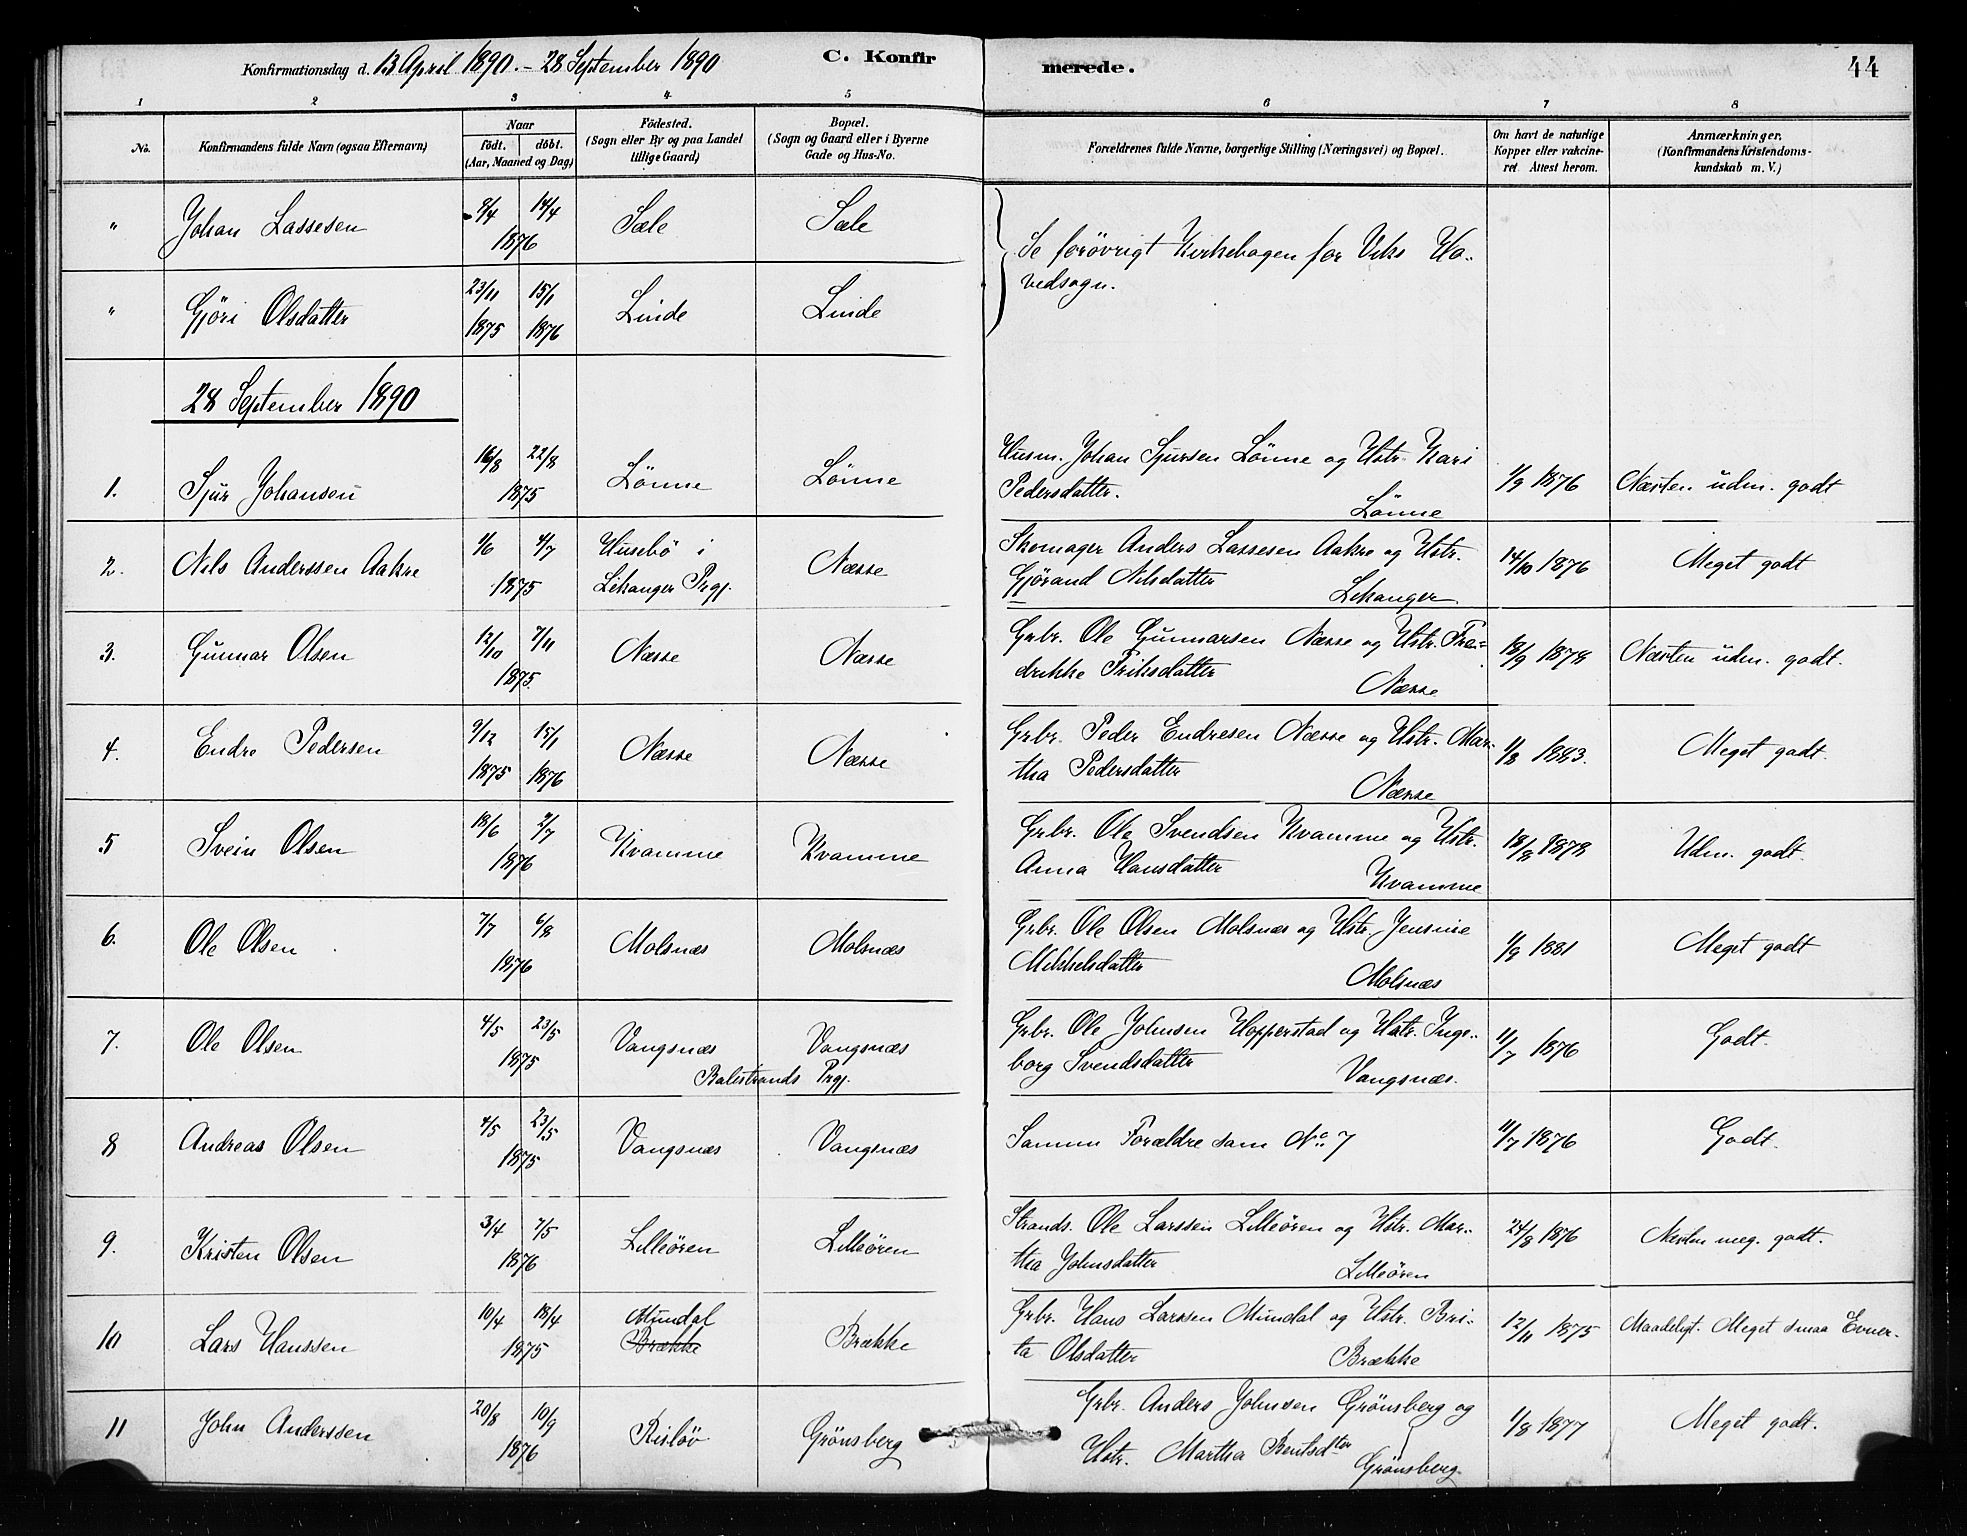 Konfirmationsdag d. 13 April 1890. - 28 September 1890 C. Konfirmerede. 44
1 2 3 4 5 6 7 8
No. Konfirmandens fulde Navn (ogsaa Efternavn) Naar födt. döbt. (Aar, Maaned og Dag) Födested. (Sogn eller By og paa Landet tillige Gaard) Bopæl. (Sogn og Gaard eller i Byerne Gade og Hus-No. Forældrenes fulde Navne, borgerlige Stilling (Næringsvei) og Bopæl. Om havt de naturlige Kopper eller vakcineret Attest herom. Anmærkninger. (Konfirmandens Kristendomskundskab m. V.)
" Johan Lassesen 9/4 14/4 1876 Sæle Sæle
Se forøvrigt Kirkebogen for Viks Hovedsogn.
" Gjöri Olsdatter 23/11 1875 15/1 1876 Linde Linde
28 September 1890
1. Sjur Johansen 16/8 22/8 1875 Lönne Lönne Husm. Johan Sjursen Lönne og Hstr. Kari
Pedersdatter. Lönne 1/9 1876 Næsten udm. godt
2. Nils Anderssen Aakre 1/6 4/7 1875 Husebö i Lekanger Prgj. Næsse Skomager Anders Lassesen Aakre og Hstr.
Gjörand Nilsdatter Lekanger 14/10 1876 Meget godt
3. Gunnar Olsen 12/10 7/11 1875. Næsse Næsse Grbr. Ole Gunnarsen Næsse og Hstr. Fre-
drikke Friksdatter Næsse 18/9 1878 Næsten udm. godt.
4. Endre Pedersen 9/12 1875 15/1 1876 Næsse Næsse Grbr. Peder Endresen Næsse og Hstr. Mar-
tha Pedersdatter Næsse 1/8 1883. Meget godt.
5 Svein Olsen 18/6 2/7 1876 Kvamme Kvamme Grbr. Ole Svendsen Kvamme og Hstr.
Anna Hansdatter Kvamme 18/8 1878 Udm. godt.
6. Ole Olsen 7/7 6/8 1876 Molsnæs Molsnæs Grbr. Ole Olsen Molsnæs og Hstr. Jensine
Mikkelsdatter Molsnæs 1/9 1881 Meget godt
7. Ole Olsen 4/5 23/5 1875 Vangsnæs Vangsnæs
Balestrands Prgj. Grbr. Ole Johnsen Hopperstad og Hstr. Inge-
borg Svendsdatter Vangsnæs. 11/7 1876 Godt.
8 Andreas Olsen 4/5 23/5 1875 Vangsnæs Vangsnæs Samme Forældre som No. 7 11/7 1876 Godt.
9. Kristen Olsen 3/4 7/5 1876 Lilleören Lilleören Strands. Ole Larssen Lilleören og Hstr. Mar-
tha Johnsdatter Lilleören 24/8 1876 Næsten meg. godt.
10 Lars Hanssen 10/4 18/4 1875 Mundal Brække Brække Grbr. Hans Larssen Mundal og Hstr. Bri-
ta Olsdatter Brække 12/11 1875 Maadeligt. Meget smaa Evner.
11 John Anderssen 20/8 10/9 1876 Rislöv Grönsberg Grbr. Anders Johnsen Grönsberg og
Hstr. Martha Bentsdter Grönsberg. 1/8 1877 Meget godt.